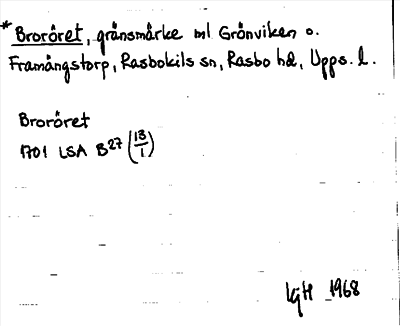 * Broröret, gränsmärke ml Grönviken o.
Framångstorp, Rasbokils sn, Rasbo hd, Upps. l.
Broröret
1701 LSA B27 (13/1)
LgH 1968